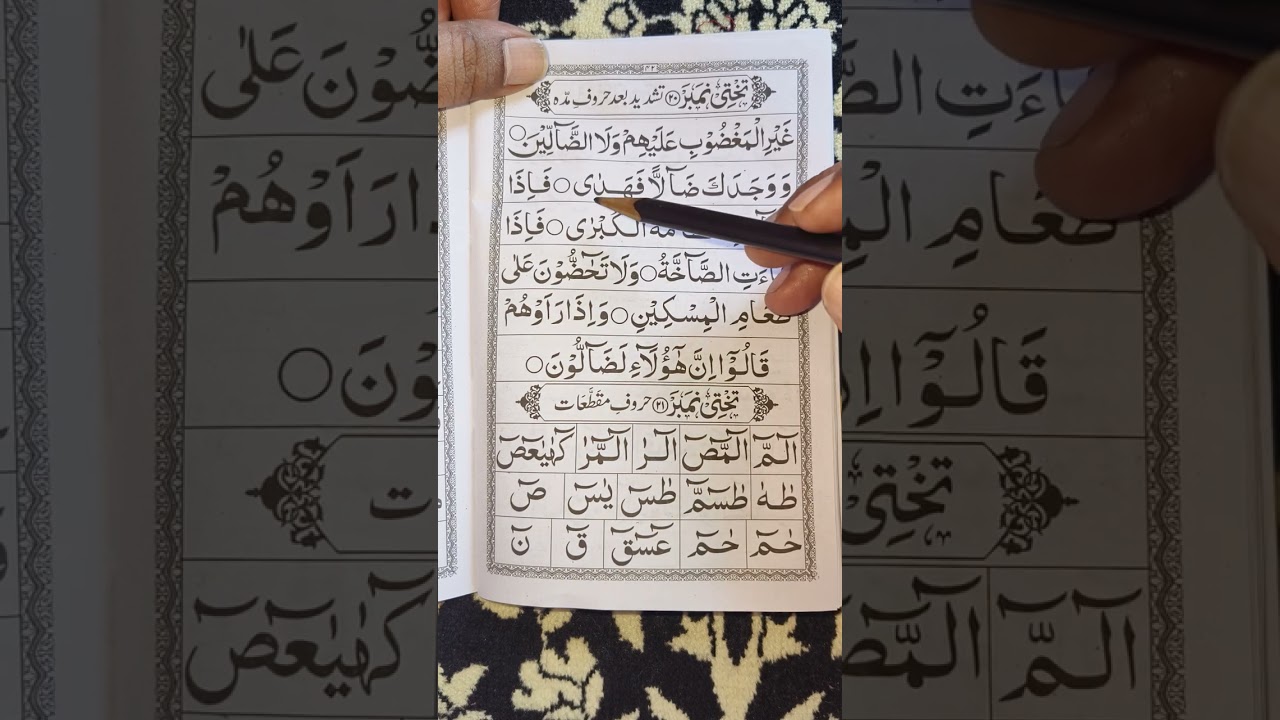 ۴۲
تختی نمبر ۲۰ تشدید بعد حروفِ مدّہ
غَيْرِ الْمَغْضُوْبِ عَلَيْهِمْ وَلَا الضَّآلِّيْنَ ○
وَوَجَدَكَ ضَآلًّا فَهَدٰى ○ فَاِذَا
الْكُبْرٰى ○ فَاِذَا
الصَّآخَّةُ ○ وَلَا تَحٰٓضُّوْنَ عَلٰى
طَعَامِ الْمِسْكِيْنِ ○ وَاِذَا رَاَوْهُمْ
قَالُوْٓا اِنَّ هٰٓؤُلَآءِ لَضَآلُّوْنَ ○
تختی نمبر ۲۱ حروفِ مقطَّعَات
الٓمّٓ الٓمّٓصٓ الٓرٰ الٓمّٓرٰ كٓهٰيٰعٓصٓ
طٰهٰ طٰسٓمّٓ طٰسٓ يٰسٓ صٓ
حٰمٓ حٰمٓ عٓسٓقٓ قٓ نٓ